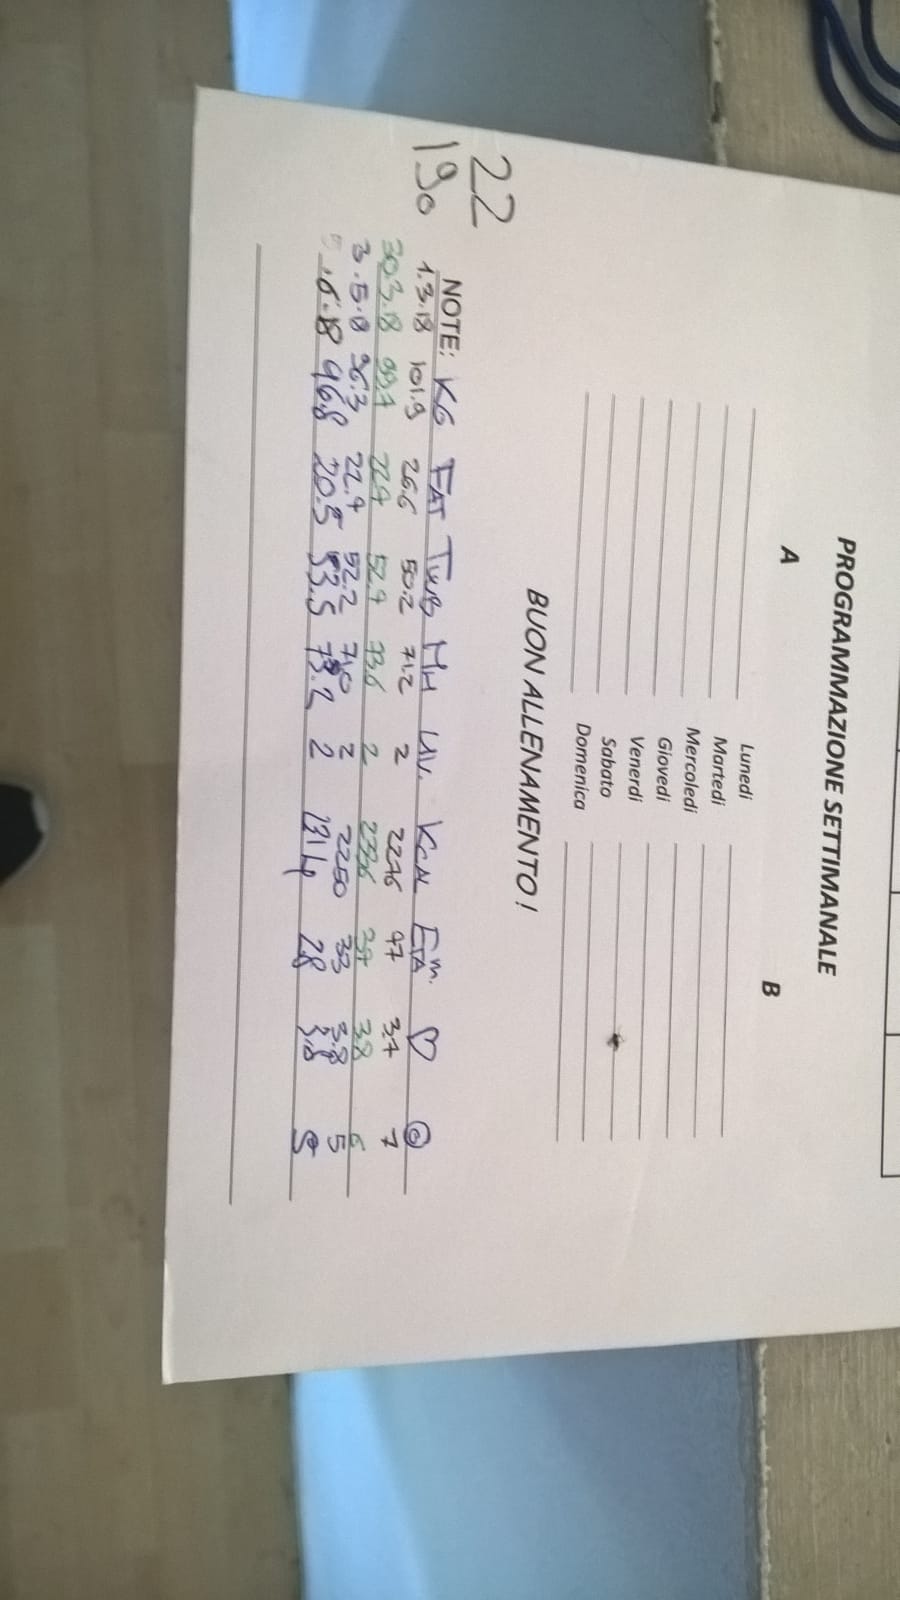 PROGRAMMAZIONE SETTIMANALE
A B
Lunedì
Martedì
Mercoledì
Giovedì
Venerdì
Sabato
Domenica
BUON ALLENAMENTO!
22
190
NOTE: KG FAT TWB MM LIV. KCAL ETA m. ♡ ☺
1.3.18 101.9 26.6 50.2 71.2 2 2276 47 3.7 7
30.3.18 99.7 22.9 52.9 73.6 2 39 3.8 6
3.5.8 96.3 22.9 52.2 71.0 2 2250 33 3.8 5
.6.18 96.8 20.5 53.5 73.2 2 2314 28 3.8 5